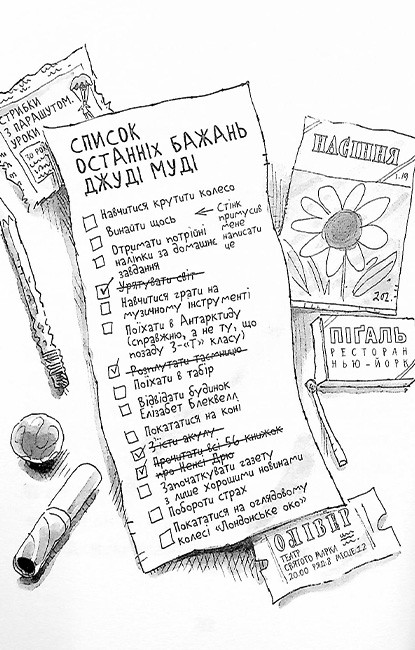 СТРИБКИ
З ПАРАШУТОМ:
УРОКИ
СПИСОК
ОСТАННІХ БАЖАНЬ
ДЖУДІ МУДІ
Навчитися крутити колесо
Винайти щось
← Стінк
примусив
мене
написати
це
Отримати потрійні
наліпки за домашнє
завдання
Урятувати світ
Навчитися грати на
музичному інструменті
Поїхати в Антарктиду
(справжню, а не ту, що
позаду 3-«Т» класу)
Розплутати таємницю
Поїхати в табір
Відвідати будинок
Елізабет Блеквелл
Покататися на коні
З'їсти акулу
Прочитати всі 56 книжок
про Ненсі Дрю
Започаткувати газету
з лише хорошими новинами
Побороти страх
Покататися на оглядовому
колесі «Лондонське око»
НАСІННЯ
1.19
ПІҐАЛЬ
РЕСТОРАН
НЬЮ-ЙОРК
ОЛІВЕР
ТЕАТР
СВЯТОГО МАРКА
20:00 РЯД:8 МІСЦЕ:12